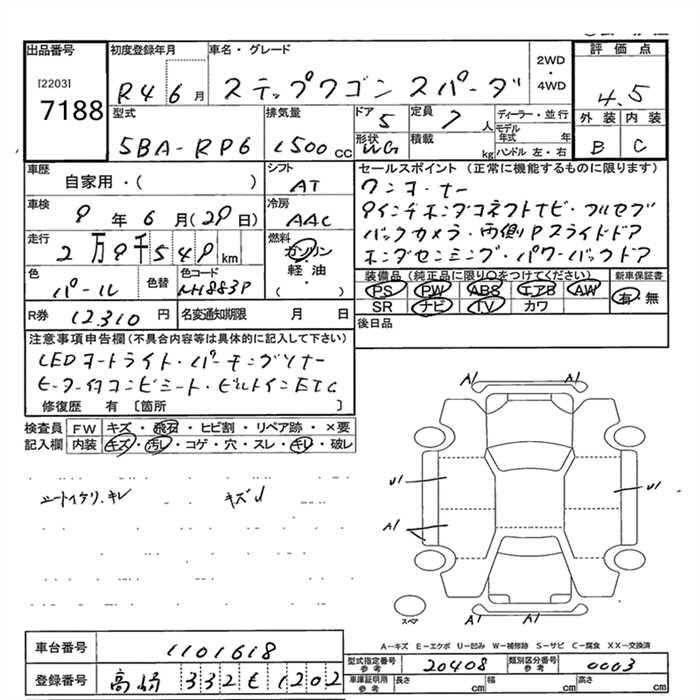 出品番号 初度登録年月 車名・グレード 2WD ・ 4WD 評価点
[2203]
7188
R4 6月 ステップワゴン スパーダ 4.5
型式 排気量 ドア 5 定員 7人 ディーラー・並行 外装 内装
5BA-RP6 1500cc 形状 WG 積載 kg モデル年式 年 ハンドル 左・右 B C
車歴 自家用・( ) シフト AT セールスポイント (正常に機能するものに限ります)
ワンオーナー
車検 9年6月(29日) 冷房 AAC
9インチホンダコネクトナビ・フルセグ
バックカメラ・両側Pスライドドア
走行 2万9千549km 燃料 ガソリン・軽油・( )
ホンダセンシング・パワーバックドア
色 パール 色替 色コード NH883P
装備品 (純正品に限り○をつけてください) 新車保証書
PS PW ABS エアB AW 有・無
SR ナビ TV カワ
R券 12310円 名変通知期限 月 日 後日品
注意事項申告欄 (不具合内容等は具体的に記入して下さい)
LEDヘッドライト・パーキングソナー
ヒーター付コンビシート・ビルトインETC
修復歴 有 〔箇所 〕
検査員 FW キズ・飛石・ヒビ割・リペア跡・×要
記入欄 内装 キズ・汚レ・コゲ・穴・スレ・キレ・破レ
キズ
A1 A1
U1 U1
A1
A1 A1
スペア
A―キズ E―エクボ U―凹み W―補修跡 S―サビ C―腐食 XX―交換済
車台番号 1101618
型式指定番号 参考 20408 類別区分番号 参考 0003
登録番号 高崎 332 1202
車庫証明用 参考 長さ cm 幅 cm 高さ cm